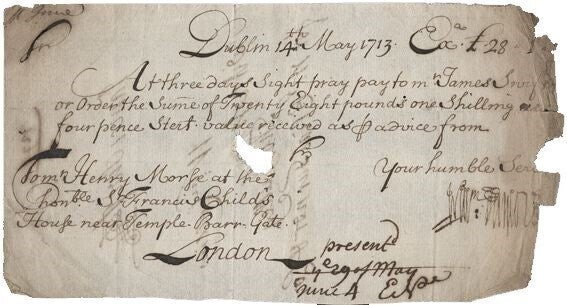 Dublin 14th May 1713. Exa £28
Sr
At three days Sight pray pay to mr James
or Order the Sume of Twenty Eight pounds one Shilling
four pence Sterl. value received as p advice from
Sr
Your humble
To mr Henry Morse at the
honble Sr Francis Child's
House near Temple-Barr-Gate.
London
presentd
ye 29 of May
June 4